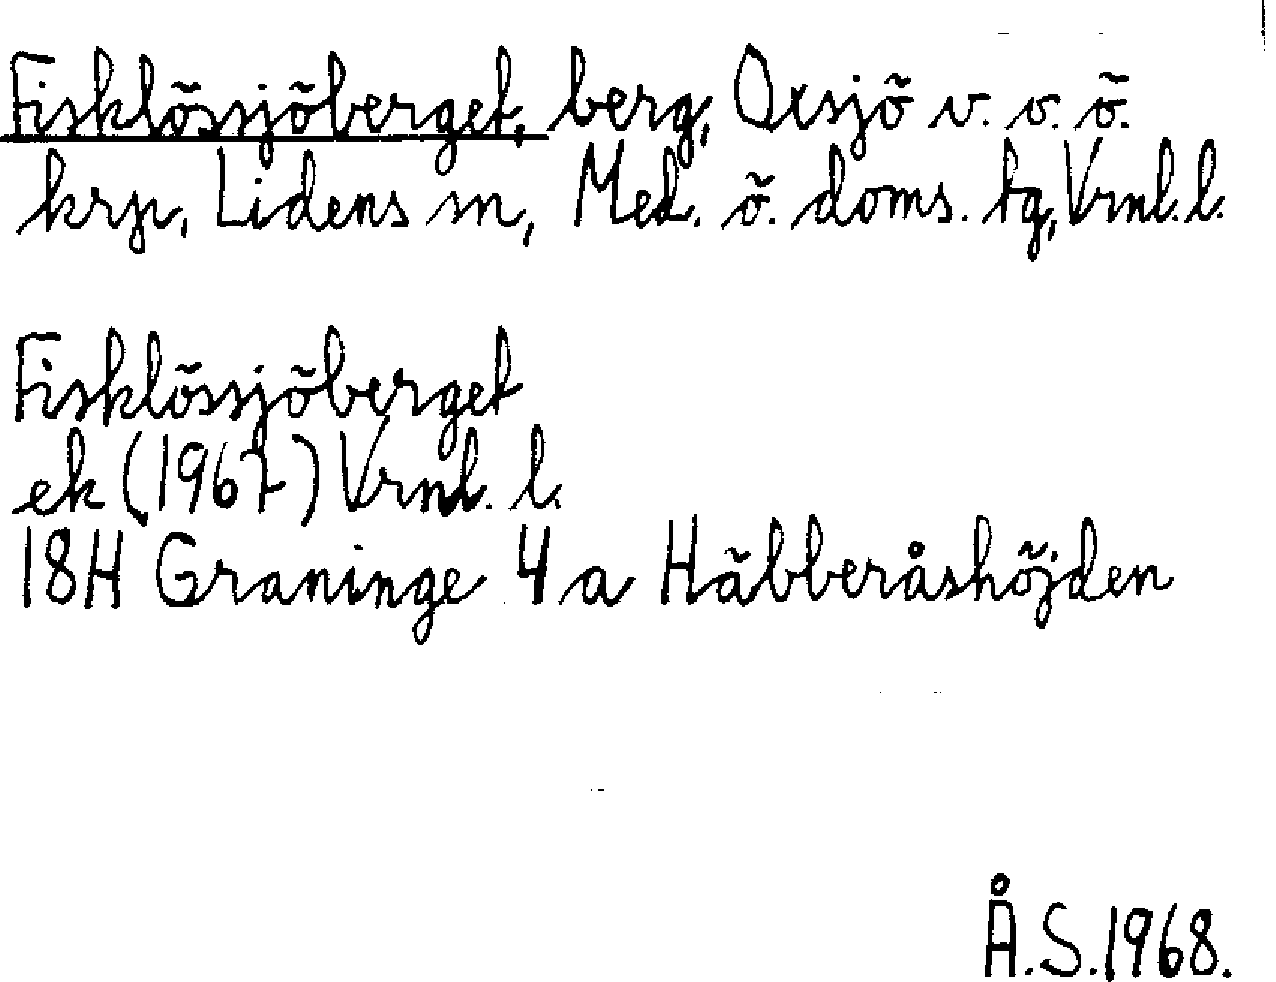 Fisklössjöberget, berg, Oxsjö v. o. ö.
krp, Lidens sn, Med. ö. doms. tg, Vrnl. l.
Fisklössjöberget
ek (1967) Vrnl. l.
18H Graninge 4a Häbberåshöjden
Å.S. 1968.